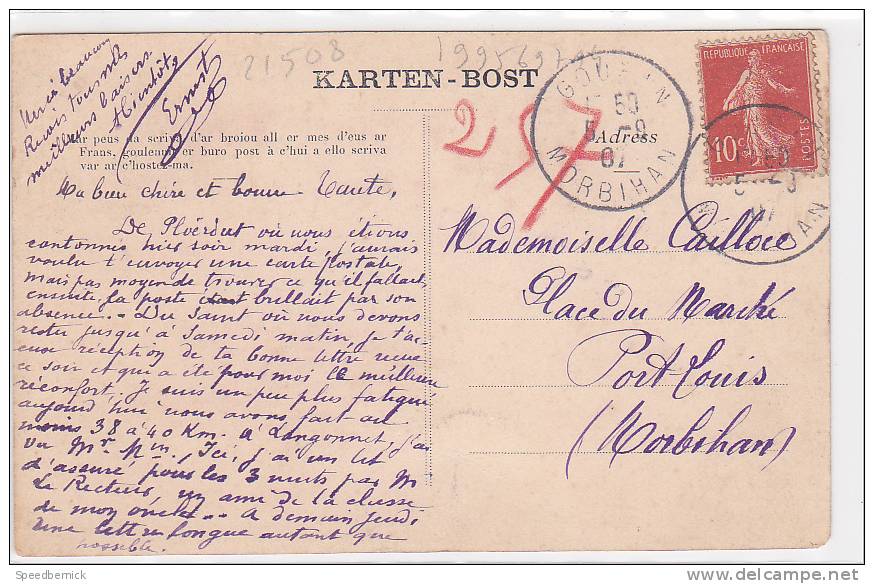 21508
1995697
Merci beaucoup
Reçois tous mes
meilleurs baisers
A bientôt,
Ernest
KARTEN-BOST
ar peus da scriva d'ar broiou all er mes d'eus ar
Frans, goulenn er buro post a c'hui a ello scriva
var ar c'hostez-ma.
Adress
257
GOURIN
MORBIHAN
REPUBLIQUE FRANÇAISE
10c
POSTES
Ma bien chère et bonne Tante,
De Ploërdut où nous étions
cantonnés hier soir mardi, j'aurais
voulu t'envoyer une carte postale,
mais pas moyen de trouver ce qu'il fallait,
ensuite la poste brillait par son
absence.. Du Saint où nous devons
rester jusqu'à Samedi matin, je t'ac-
cuse réception de ta bonne lettre reçue
ce soir et qui a été pour moi le meilleur
réconfort. Je suis un peu plus fatigué
aujourd'hui nous avons fait au
moins 38 à 40 Km. A Langonnet, j'ai
vu Mr. Ici, j'ai un lit
d'assuré pour les 3 nuits par M
Le Recteur, un ami de la classe
de mon oncle.. A demain jeudi
une lettre longue autant que
possible.
Mademoiselle Cailloce
Place du Marché
Port Louis
(Morbihan)
Speedbemick
delcampe.net